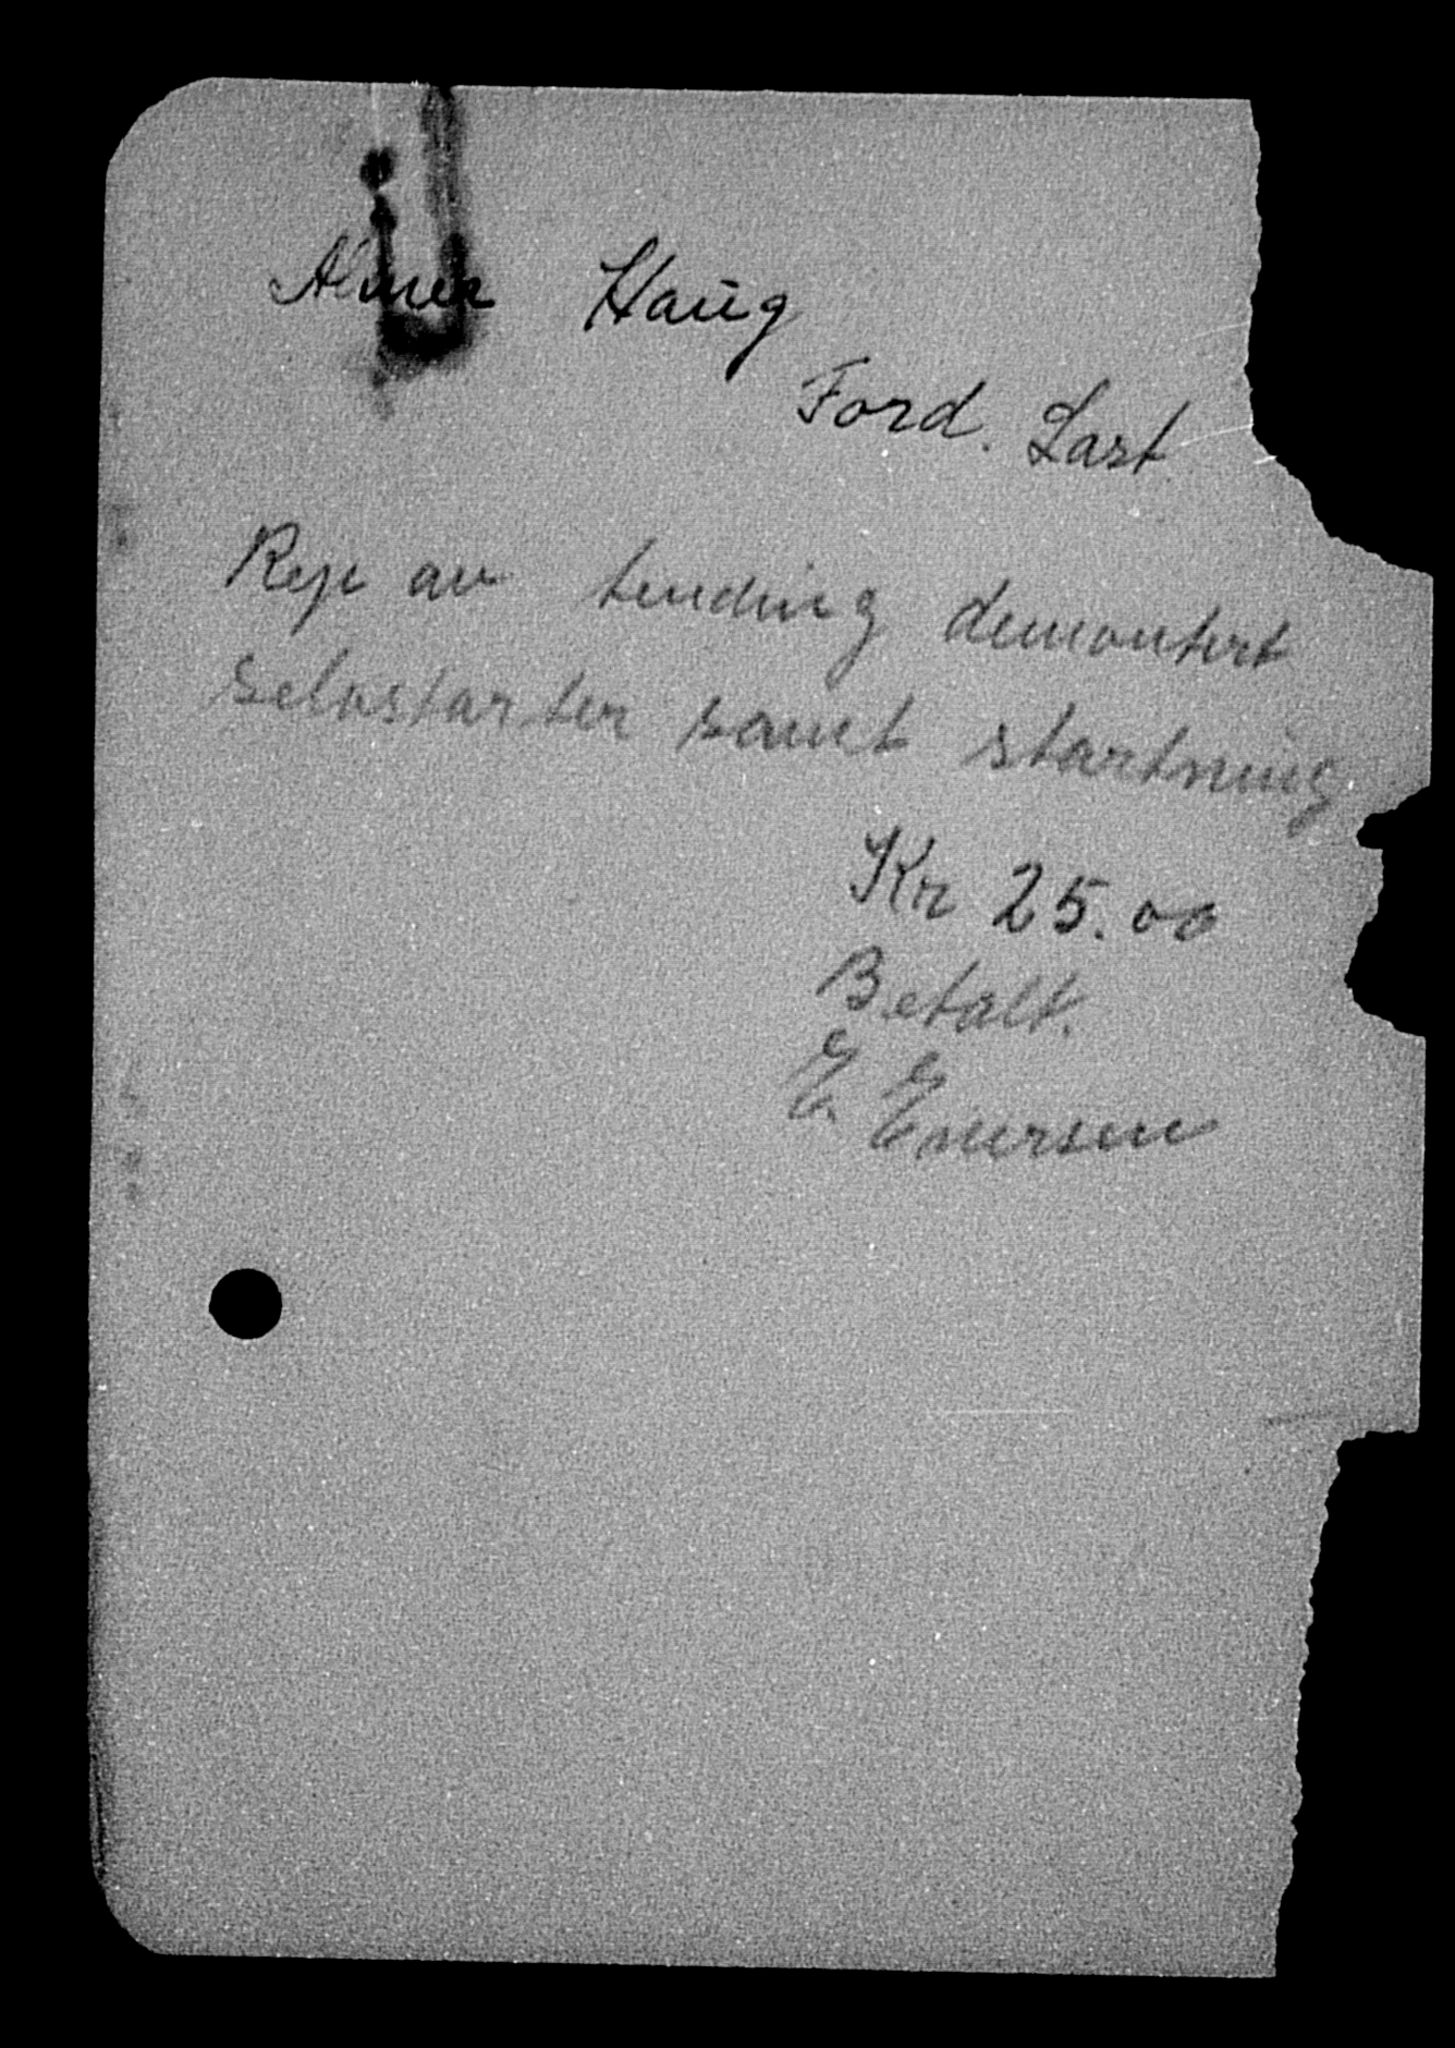 Haug
Ford. Last
Rep av tending demontert
selvstarter samt startning
Kr 25.00
Betalt.
E. Enersen